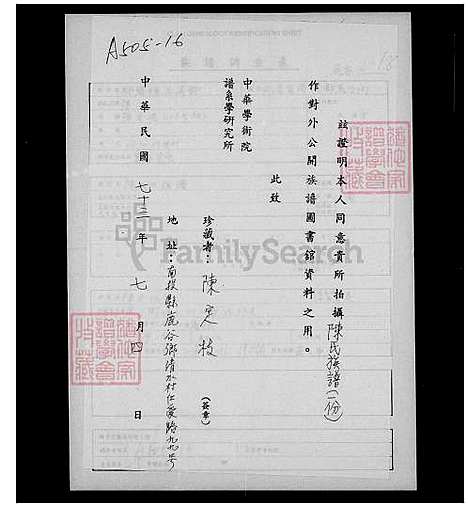 A505-16
茲證明本人同意貴所拍攝陳氏族譜(一份)
作對外公開族譜圖書館資料之用。
此致
中華學術院
譜系學研究所
珍藏者：陳定枝(簽章)
地址：南投縣鹿谷鄉清水村仁愛路九九號
中華民國七十三年七月四日
FamilySearch